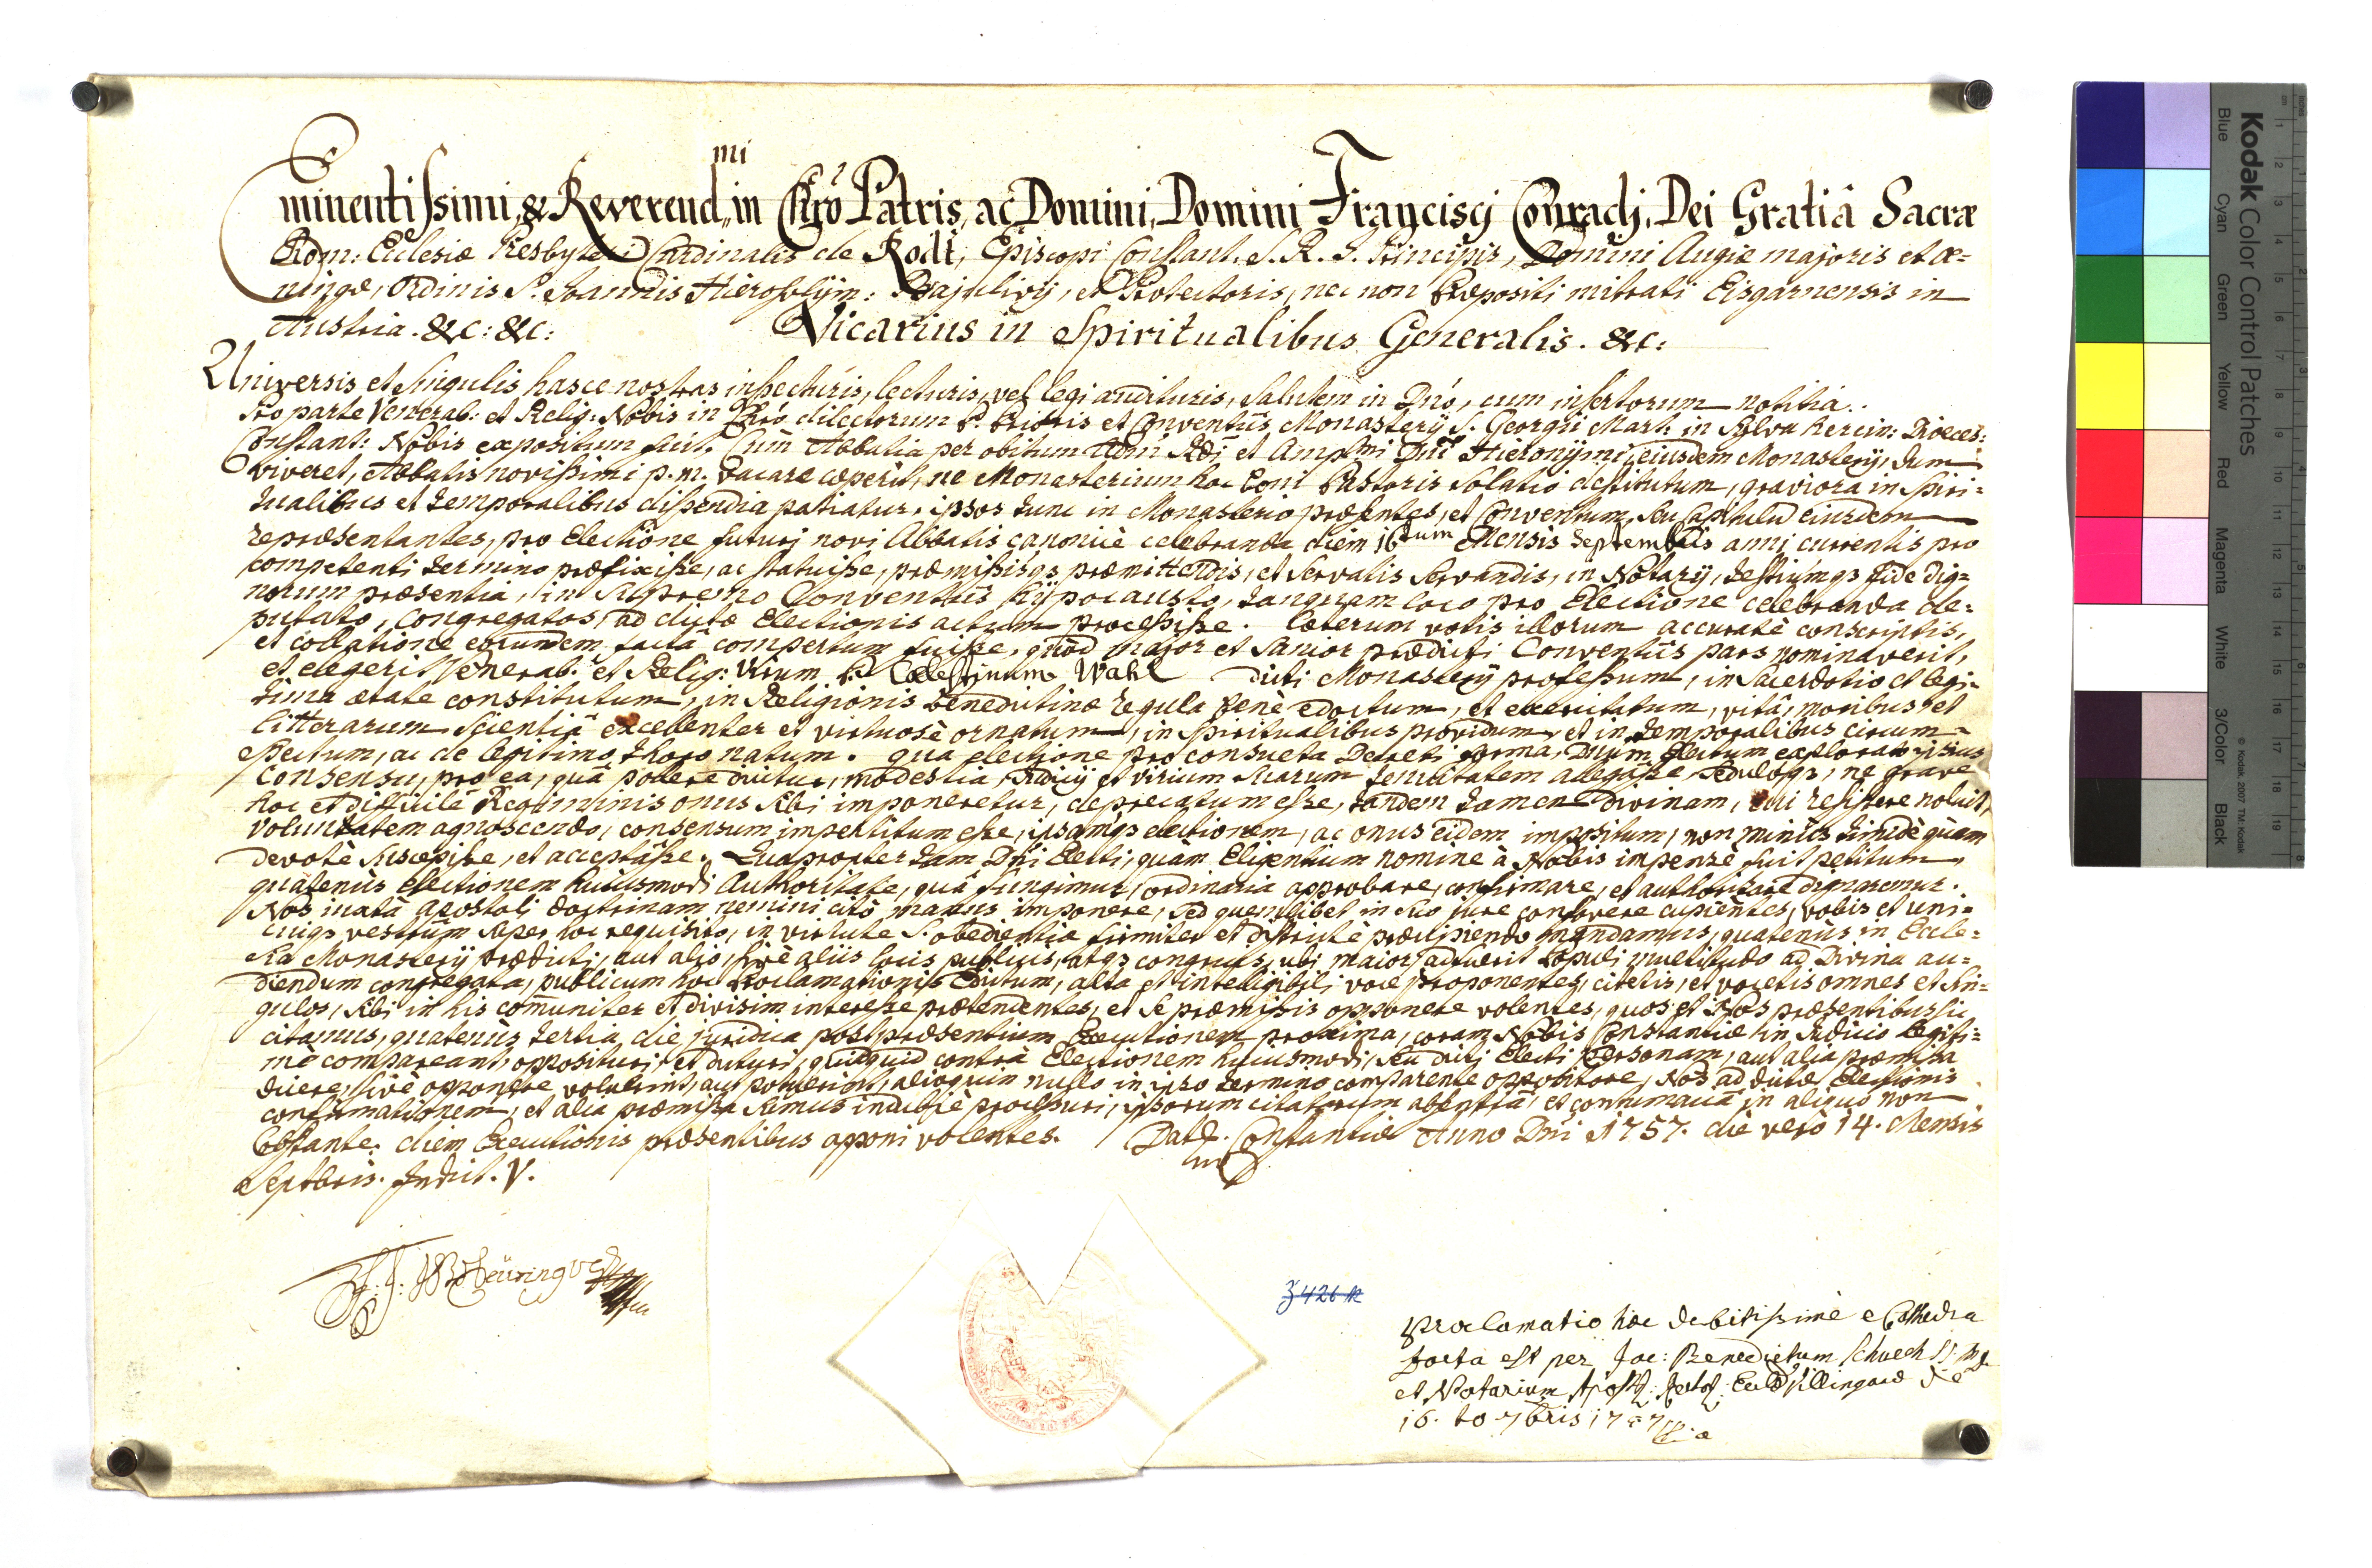 Eminentissimi, & Reverend.mi in Chro Patris, ac Domini, Domini Francisci Conradi, Dei Gratiâ Sacræ
Rom: Ecclesiæ Presbyteri Cardinalis de Rodt, Episcopi Constant. S. R. I. Principis, Domini Augiæ majoris et Œ=
ningæ, Ordinis S. Joannis Hierosolÿm: Bajulivij, et Protectoris, nec non Præpositi mitrati Eisgarnensis in
Austria. &c: &c: Vicarius in Spiritualibus Generalis. &c:
Universis et singulis hasce nostras inspecturis, lecturis, vel legi audituris, Salutem in Dnó, cum insertorum notitia.
Pro parte Venerab: et Relig: Nobis in Chró dilectorum P. Prioris et Conventûs Monasterij S. Georgii Mart: in Sylva hercin: Dioeces:
Constant: Nobis expositum fuit, Cùm Abbatia per obitum Adm̄ Rdi et Ampl.mi Dni Hieronÿmi, eiusdem Monasterij, dum
viveret, Abbatis novissimi p. m. vacare cæperit, ne Monasterium hoc boni Pastoris solatio destitutum, graviora in spiri=
tualibus et temporalibus dispendia patiatur, ipsos tunc in Monasterio præsentes, et Conventum, seu Capitulū eiusdem
repræsentantes, pro Electione futurj novi Abbatis canonicè celebranda diem 16tum Mensis Septembris anni currentis pro
competenti termino præfixisse, ac statuisse, præmissisq3 præmittendis, et servatis servandis, in Notarij, testiúmq3 fide dig=
norum præsentia, in Supremo Conventûs hÿpocausto, tanquam loco pro Electione celebranda de=
putato, congregatos, ad dictæ Electionis actum processisse. Cæterum votis illorum accuratè conscriptis,
et collatione eorundem factâ compertum fuisse, quòd major et sanior prædicti Conventûs pars nominaverit,
et elegerit Venerab: et Relig: Virum P. Cælestinum Wahl dicti Monasterij professum, in Sacerdotio et legi=
tima ætate constitutum, in Religionis benedictinæ regula benè edoctum, et exercitatum, vitâ, moribus et
litterarum scientiâ excellenter et virtuosè ornatum, in spiritualibus providum, et in temporalibus circum=
spectum, ac de legitimo thoro natum. qua electione pro consueta Decreti forma, Dnum Electum explorato ipsius
consensu, pro ea, quâ pollere dicitur, modestia, Judicij et virium suarum tenuitatem allegásse, sedulòq3, ne grave
hoc et difficile Regiminis onus sibi imponeretur, deprecatum esse, tandem tamen divinam, cui resistere noluit,
voluntatem agnoscendo, consensum impertitum esse, ipsamq3 electionem, ac onus eidem impositum, non minùs timidè quàm
devotè suscepisse, et acceptásse. Quapropter tam Dni Electi, quàm Eligentium nomine à Nobis impensè fuit petitum,
quatenùs electionem huiusmodi Authoritate, quâ fungimur, ordinaria approbare, confirmare, et authorizare dignaremur.
Nos iuxtâ Apostoli doctrinam nemini citò manus imponere, sed quemlibet in suo jure confovere cupientes, vobis et uni=
cuiq3 vestrûm super hoc requisito, in virtute S. obedientiæ firmiter et districtè præcipiendo mandamus, quatenùs in Eccle=
sia Monasterij prædicti, aut alio, sivè aliis locis publicis, atq3 congruis, ubi maior adfuerit populi multitudo ad Divina au=
diendum congregata, publicum hoc Proclamationis Edictum, alta et intelligibili voce proponentes, citetis, et vocetis omnes et sin=
gulos, sibi in his com̄uniter et divisim interesse prætendentes, et se præmissis opponere volentes, quos et Nos præsentibus sic
citamus, quatenùs tertia die juridica post præsentium Executionem proxima, coram Nobis Constantiæ in Judicio legiti=
mè compareant, opposituri, et dicturi, quidquid contra Electionem huiusmodi, seu dicti Electi personam, aut alia præmissa
dicere, sivè opponere voluerint, aut potuerint, alioquin nullo in ipso termino comparente oppositore, Nos ad dictæ Electionis
confirmationem, et alia præmissa simus indubiè processuri, ipsorum citatorum absentiâ, et contumaciâ in aliquo non
obstante. diem Executionis præsentibus apponi volentes. Dat. Constantiæ Anno Dni 1757. die verò 14. Mensis
Septbris. Indict. V.
Z 426 R
Proclamatio hæc debitissimè e Cathedra
facta est per Joc: Benedictum Schuech
et Notarium Apostl: Villingæ die
16. to 7bris 1757